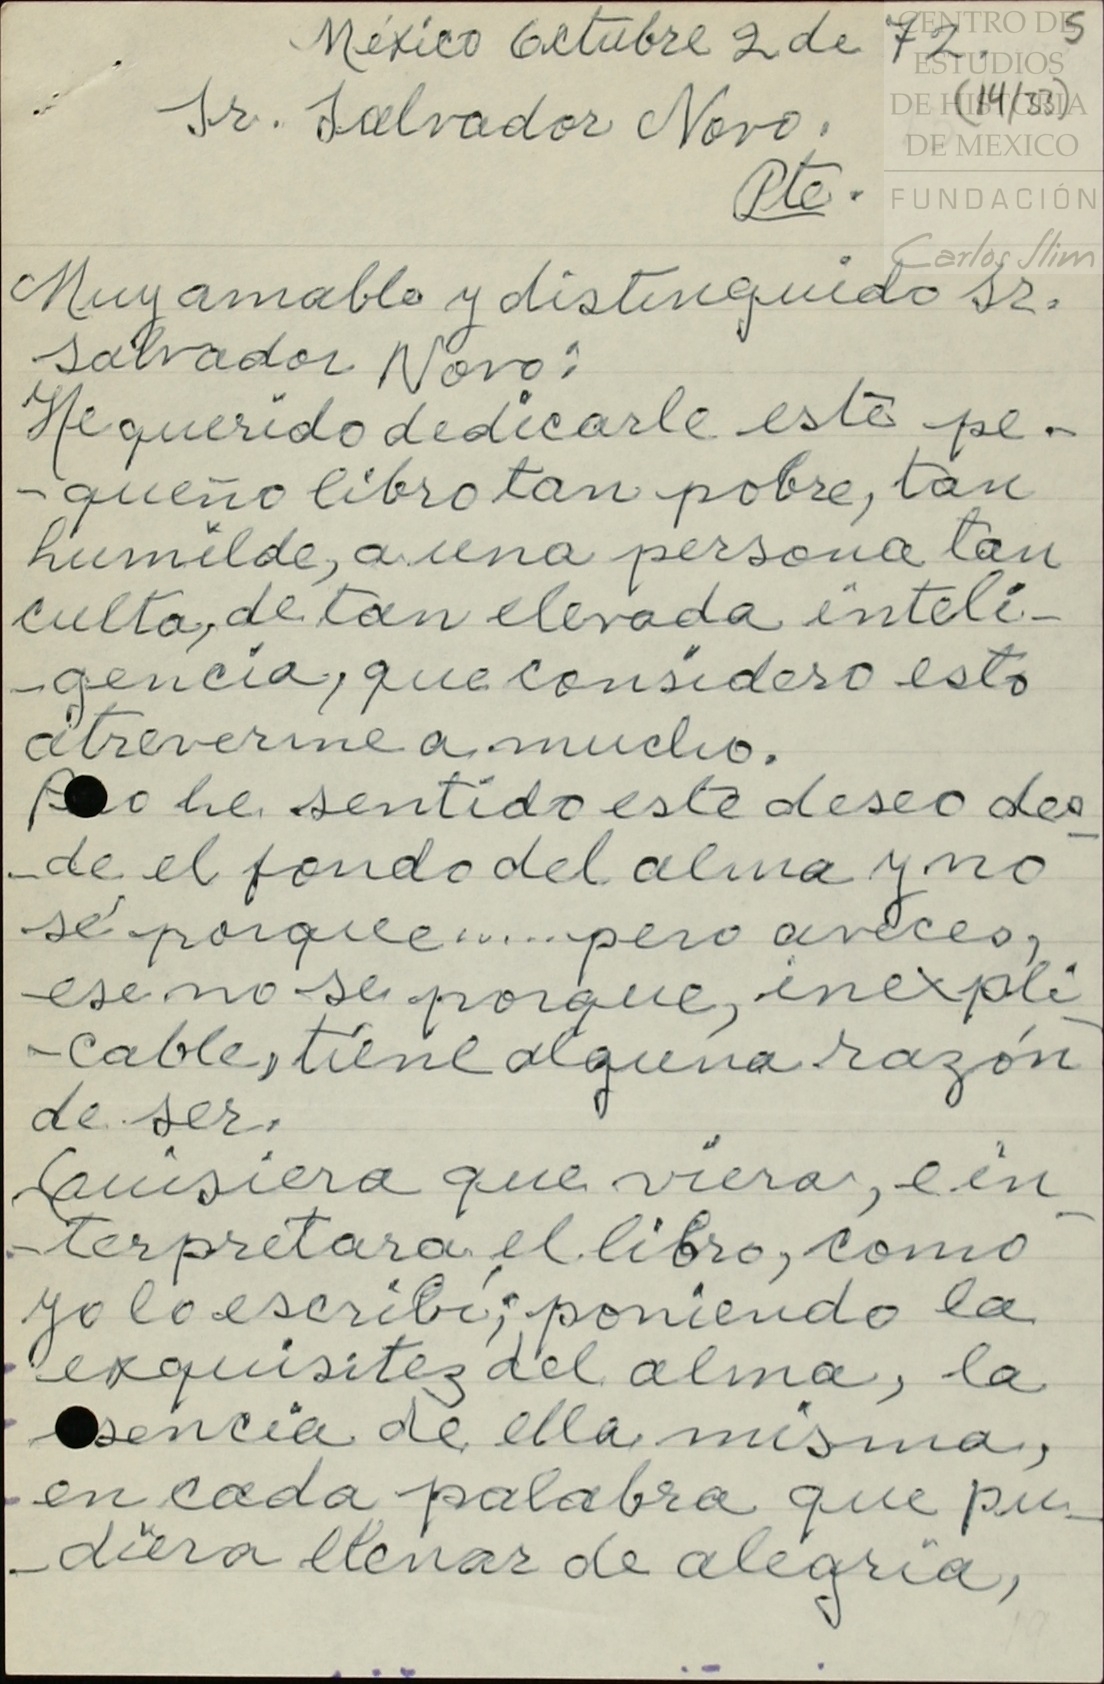 México Octubre 2 de 72. 5
(14/33)
Sr. Salvador Novo.
Pte.
CENTRO DE
ESTUDIOS
DE HISTORIA
DE MEXICO
FUNDACIÓN
Carlos Slim
Muy amable y distinguido Sr.
Salvador Novo:
He querido dedicarle este pe-
-queño libro tan pobre, tan
humilde, a una persona tan
culta, de tan elevada inteli-
-gencia, que considero esto
atreverme a mucho.
he sentido este deseo des-
-de el fondo del alma y no
sé porque......pero aveces,
ese no se porque, inexpli-
-cable, tiene alguna razón
de ser.
Quisiera que viera, e in-
-terpretara el libro, como
yo lo escribí; poniendo la
exquisitez del alma, la
esencia de ella misma,
en cada palabra que pu-
-diera llenar de alegria,